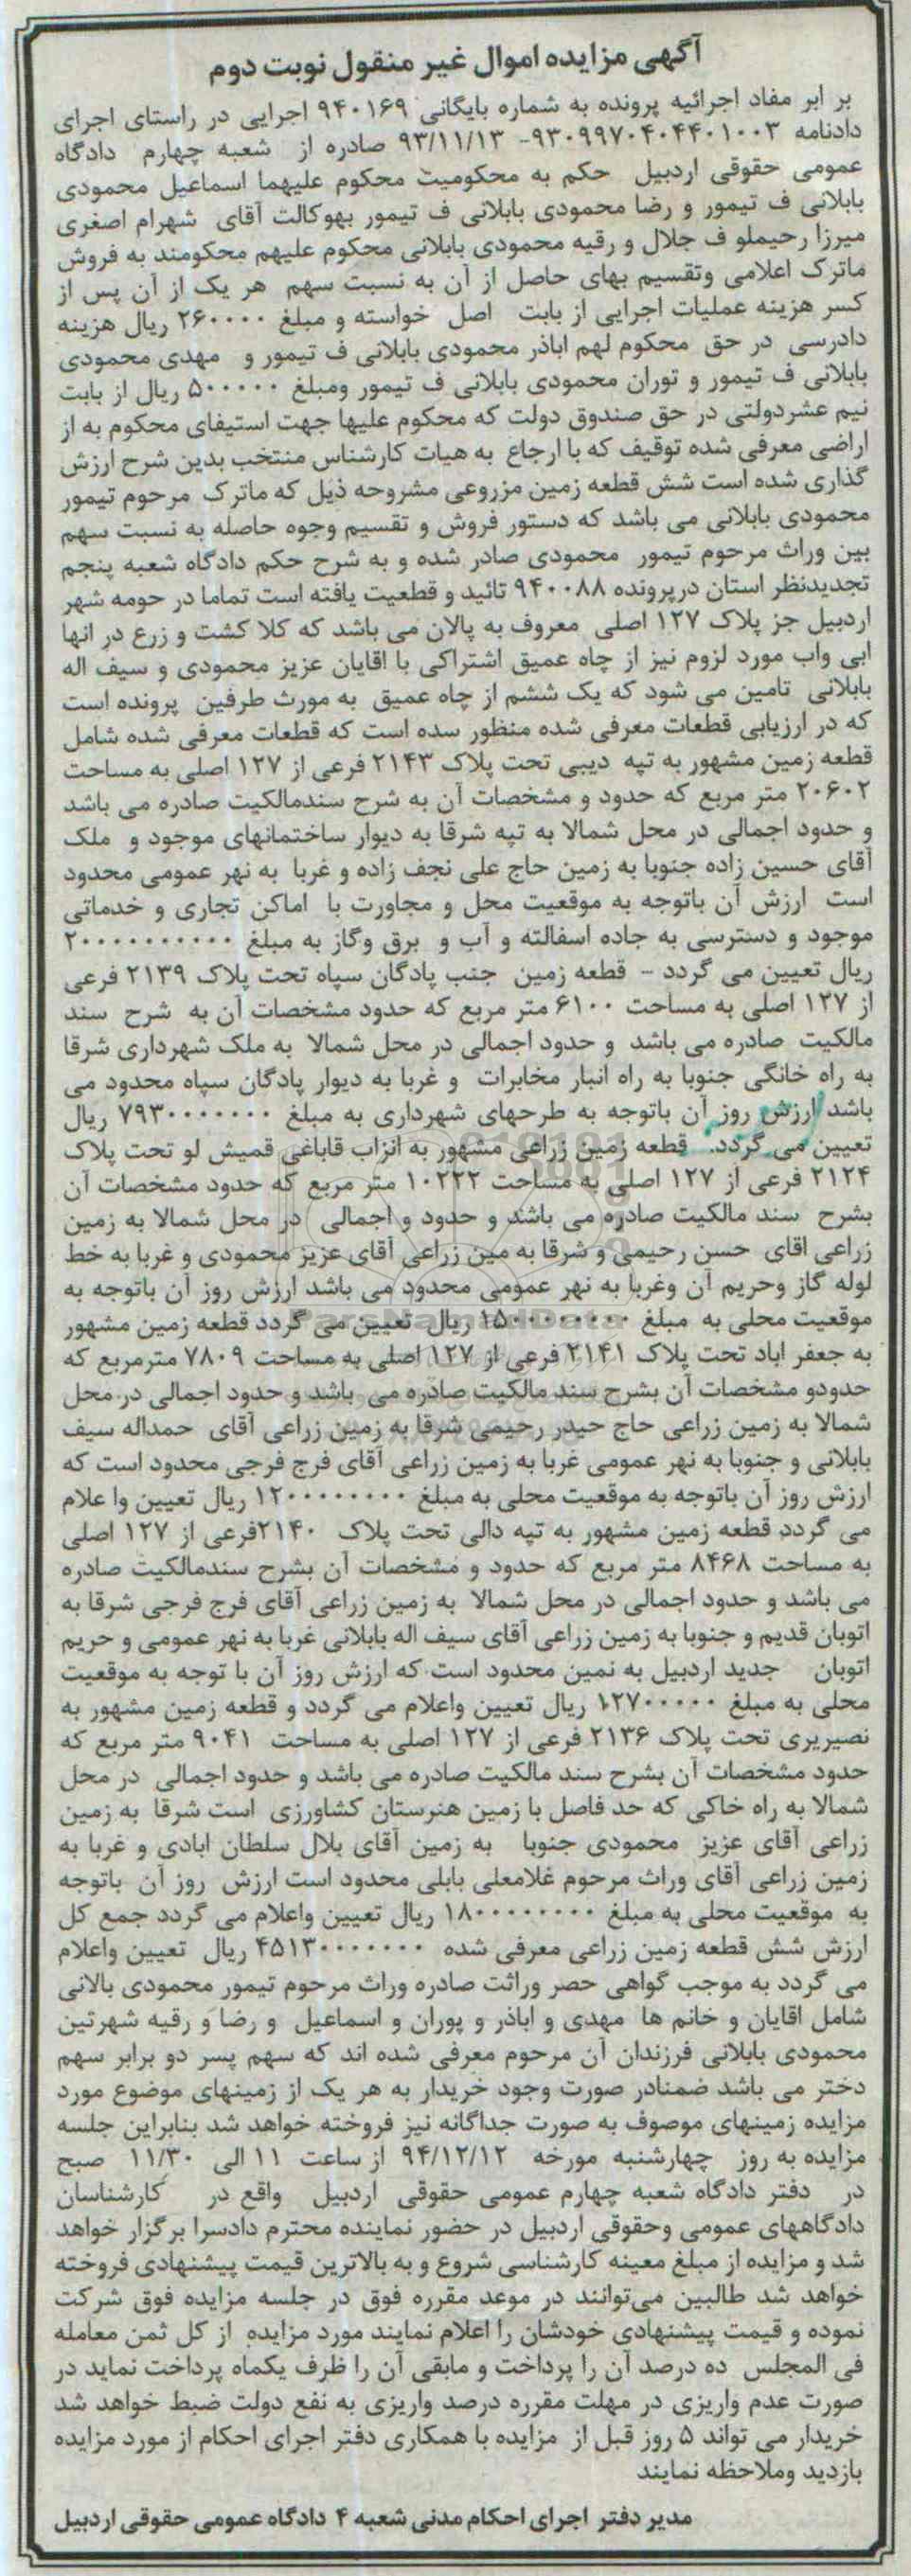 آگهی مزایده اموال غیر منقول نوبت دوم
بر ابر مفاد اجرائیه پرونده به شماره بایگانی ۹۴۰۱۶۹ اجرایی در راستای اجرای
دادنامه ۹۳۰۹۹۷۰۴۰۴۴۰۱۰۰۳- ۹۳/۱۱/۱۳ صادره از شعبه چهارم دادگاه
عمومی حقوقی اردبیل حکم به محکومیت محکوم علیهما اسماعیل محمودی
بابلانی ف تیمور و رضا محمودی بابلانی ف تیمور بهوکالت آقای شهرام اصغری
میرزا رحیملو ف جلال و رقیه محمودی بابلانی محکوم علیهم محکومند به فروش
ماترک اعلامی وتقسیم بهای حاصل از آن به نسبت سهم هر یک از آن پس از
کسر هزینه عملیات اجرایی از بابت اصل خواسته و مبلغ ۲۶۰۰۰۰ ریال هزینه
دادرسی در حق محکوم لهم اباذر محمودی بابلانی ف تیمور و مهدی محمودی
بابلانی ف تیمور و توران محمودی بابلانی ف تیمور ومبلغ ۵۰۰۰۰۰ ریال از بابت
نیم عشردولتی در حق صندوق دولت که محکوم علیها جهت استیفای محکوم به از
اراضی معرفی شده توقیف که با ارجاع به هیات کارشناس منتخب بدین شرح ارزش
گذاری شده است شش قطعه زمین مزروعی مشروحه ذیل که ماترک مرحوم تیمور
محمودی بابلانی می باشد که دستور فروش و تقسیم وجوه حاصله به نسبت سهم
بین وراث مرحوم تیمور محمودی صادر شده و به شرح حکم دادگاه شعبه پنجم
تجدیدنظر استان درپرونده ۹۴۰۰۸۸ تائید و قطعیت یافته است تماما در حومه شهر
اردبیل جز پلاک ۱۲۷ اصلی معروف به پالان می باشد که کلا کشت و زرع در انها
ابی واب مورد لزوم نیز از چاه عمیق اشتراکی با اقایان عزیز محمودی و سیف اله
بابلانی تامین می شود که یک ششم از چاه عمیق به مورث طرفین پرونده است
که در ارزیابی قطعات معرفی شده منظور سده است که قطعات معرفی شده شامل
قطعه زمین مشهور به تپه دیبی تحت پلاک ۲۱۴۳ فرعی از ۱۲۷ اصلی به مساحت
۲۰۶۰۲ متر مربع که حدود و مشخصات آن به شرح سندمالکیت صادره می باشد
و حدود اجمالی در محل شمالا به تپه شرقا به دیوار ساختمانهای موجود و ملک
آقای حسین زاده جنوبا به زمین حاج علی نجف زاده و غربا به نهر عمومی محدود
است ارزش آن باتوجه به موقعیت محل و مجاورت با اماکن تجاری و خدماتی
موجود و دسترسی به جاده اسفالته و آب و برق وگاز به مبلغ ۲۰۰۰۰۰۰۰۰۰۰
ریال تعیین می گردد - قطعه زمین جنب پادگان سپاه تحت پلاک ۲۱۳۹ فرعی
از ۱۲۷ اصلی به مساحت ۶۱۰۰ متر مربع که حدود مشخصات آن به شرح سند
مالکیت صادره می باشد و حدود اجمالی در محل شمالا به ملک شهرداری شرقا
به راه خانگی جنوبا به راه انبار مخابرات و غربا به دیوار پادگان سپاه محدود می
باشد ارزش روز آن باتوجه به طرحهای شهرداری به مبلغ ۷۹۳۰۰۰۰۰۰۰ ریال
تعیین می گردد. قطعه زمین زراعی مشهور به انزاب قاباغی قمیش لو تحت پلاک
۲۱۲۴ فرعی از ۱۲۷ اصلی به مساحت ۱۰۲۲۲ متر مربع که حدود مشخصات آن
بشرح سند مالکیت صادره می باشد و حدود و اجمالی در محل شمالا به زمین
زراعی اقای حسن رحیمی و شرقا به مین زراعی آقای عزیز محمودی و غربا به خط
لوله گاز وحریم آن وغربا به نهر عمومی محدود می باشد ارزش روز آن باتوجه به
موقعیت محلی به مبلغ ۱۵۰۰۰۰۰۰۰۰ ریال تعیین می گردد قطعه زمین مشهور
به جعفر اباد تحت پلاک ۲۱۴۱ فرعی از ۱۲۷ اصلی به مساحت ۷۸۰۹ مترمربع که
حدودو مشخصات آن بشرح سند مالکیت صادره می باشد و حدود اجمالی در محل
شمالا به زمین زراعی حاج حیدر رحیمی شرقا به زمین زراعی آقای حمداله سیف
بابلانی و جنوبا به نهر عمومی غربا به زمین زراعی آقای فرج فرجی محدود است که
ارزش روز آن باتوجه به موقعیت محلی به مبلغ ۱۲۰۰۰۰۰۰۰۰ ریال تعیین وا علام
می گردد قطعه زمین مشهور به تپه دالی تحت پلاک ۲۱۴۰فرعی از ۱۲۷ اصلی
به مساحت ۸۴۶۸ متر مربع که حدود و مشخصات آن بشرح سندمالکیت صادره
می باشد و حدود اجمالی در محل شمالا به زمین زراعی آقای فرج فرجی شرقا به
اتوبان قدیم و جنوبا به زمین زراعی آقای سیف اله بابلانی غربا به نهر عمومی و حریم
اتوبان جدید اردبیل به نمین محدود است که ارزش روز آن با توجه به موقعیت
محلی به مبلغ ۱۲۷۰۰۰۰۰ ریال تعیین واعلام می گردد و قطعه زمین مشهور به
نصیریری تحت پلاک ۲۱۳۶ فرعی از ۱۲۷ اصلی به مساحت ۹۰۴۱ متر مربع که
حدود مشخصات آن بشرح سند مالکیت صادره می باشد و حدود اجمالی در محل
شمالا به راه خاکی که حد فاصل با زمین هنرستان کشاورزی است شرقا به زمین
زراعی آقای عزیز محمودی جنوبا به زمین آقای بلال سلطان ابادی و غربا به
زمین زراعی آقای وراث مرحوم غلامعلی بابلی محدود است ارزش روز آن باتوجه
به موقعیت محلی به مبلغ ۱۸۰۰۰۰۰۰۰۰ ریال تعیین واعلام می گردد جمع کل
ارزش شش قطعه زمین زراعی معرفی شده ۴۵۱۳۰۰۰۰۰۰۰ ریال تعیین واعلام
می گردد به موجب گواهی حصر وراثت صادره وراث مرحوم تیمور محمودی بالانی
شامل اقایان و خانم ها مهدی و اباذر و پوران و اسماعیل و رضا و رقیه شهرتین
محمودی بابلانی فرزندان آن مرحوم معرفی شده اند که سهم پسر دو برابر سهم
دختر می باشد ضمنادر صورت وجود خریدار به هر یک از زمینهای موضوع مورد
مزایده زمینهای موصوف به صورت جداگانه نیز فروخته خواهد شد بنابراین جلسه
مزایده به روز چهارشنبه مورخه ۹۴/۱۲/۱۲ از ساعت ۱۱ الی ۱۱/۳۰ صبح
در دفتر دادگاه شعبه چهارم عمومی حقوقی اردبیل واقع در کارشناسان
دادگاههای عمومی وحقوقی اردبیل در حضور نماینده محترم دادسرا برگزار خواهد
شد و مزایده از مبلغ معینه کارشناسی شروع و به بالاترین قیمت پیشنهادی فروخته
خواهد شد طالبین می‌توانند در موعد مقرره فوق در جلسه مزایده فوق شرکت
نموده و قیمت پیشنهادی خودشان را اعلام نمایند مورد مزایده از کل ثمن معامله
فی المجلس ده درصد آن را پرداخت و مابقی آن را ظرف یکماه پرداخت نماید در
صورت عدم واریزی در مهلت مقرره درصد واریزی به نفع دولت ضبط خواهد شد
خریدار می تواند ۵ روز قبل از مزایده با همکاری دفتر اجرای احکام از مورد مزایده
بازدید وملاحظه نمایند
مدیر دفتر اجرای احکام مدنی شعبه ۴ دادگاه عمومی حقوقی اردبیل